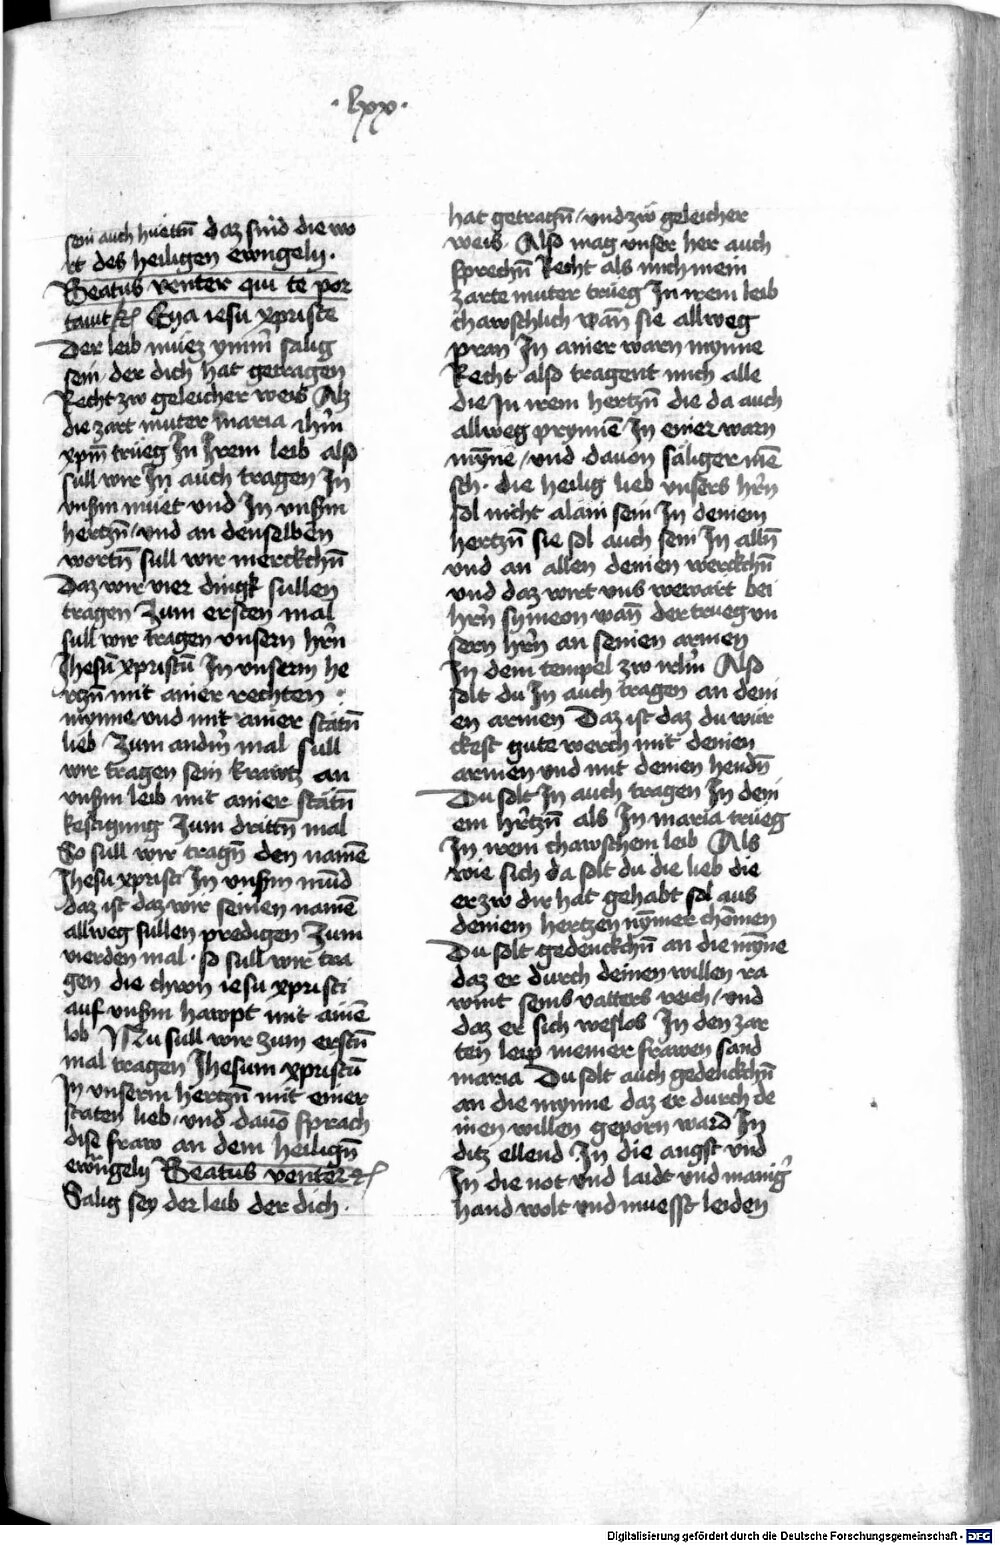 · lxx ·
sein auch huettn̄ daz sind die wo
rt des heiligen ewngelij ·
Beatus venter qui te por
tauit ꝛc̄ Eya iesu xpriste
Der leib müez ymm̄ salig
sein · der dich hat getragen
Recht zw geleicher weis Alz
die zart muter maria ih̄m
xp̄m trüeg In Irem leib also
sull wir In auch tragen In
vnserm müet vnd In vnserm
hertzn̄ / vnd an denselben
wortn̄ sull wir merckchn̄
Daz wir vier dingk sullen
tragen Zum ersten mal
sull wir tragen vnsern hr̄n
Jhesū xpristū In vnserm he
rtzn̄ mit ainer rechten
mynne vnd mit ainer stätn̄
lieb Zum andn̄ mal sull
wir tragen sein krawtz an
vnserm leib mit ainer stätn̄
kestigung Zum drittn̄ mal
So sull wir tragn̄ den namē
Jhesu xpristi In vnserm mūd
daz ist daz wir seinen namē
allweg sullen predigen Zum
vierden mal · so sull wir tra
gen die chron iesu xpristi
auf vnserm hawpt mit ainē
lob Nu sull wir zum erstn̄
mal tragen Jhesum xpristū
In vnserm hertzn̄ mit einer
staten lieb / vnd dauō sprach
dise fraw an dem heilign̄
ewngelij Beatus venter ꝛc̄
Salig sey der leib der dich ·
hat getragn̄ / vnd zw geleicher
weis · Also mag vnser her auch
sprechn̄ Recht als mich mein
zarte muter trüeg In irem leib
chawschlich wan̄ sie allweg
pran In ainer warn mynne
Recht also tragent mich alle
die In irem hertzn̄ die da auch
allweg prynnē In einer warn
mȳne / vnd dauon säliger mē
sch · die heilig lieb vnsers hr̄n
sol nicht alain sein In deinem
hertzn̄ sie sol auch sein In alln̄
vnd an allen deinen werckchn̄
vnd daz wirt vns wewärt bei
hr̄n symeon wan̄ der trueg vn
sern hr̄n an seinen armen
In dem tempel zw irl̄m Also
solt du In auch tragen an dein
en armen Daz ist daz du wür
ckest gute werch mit deinen
armen vnd mit deinen hendn̄
Du solt In auch tragen In dein
em hr̄tzn̄ als In maria trüeg
In irem chawschem leib Als
wie sich da solt du die lieb die
er zw dir hat gehabt sol aus
deinem hertzen nȳmer chomen
Du solt gedenckchn̄ an die mȳne
daz er durch deinen willen ra
wmt seins vatters reich / vnd
daz er sich weslos In den zar
ten leip meiner frawen sand
maria Du solt auch gedenckchn̄
an die mynne daz er durch de
inen willen geporn ward In
ditz ellend In die angst vnd
In die not vnd laidt vnd manig̉
hand wolt vnd muesst leiden
Digitalisierung gefördert durch die Deutsche Forschungsgemeinschaft - DFG